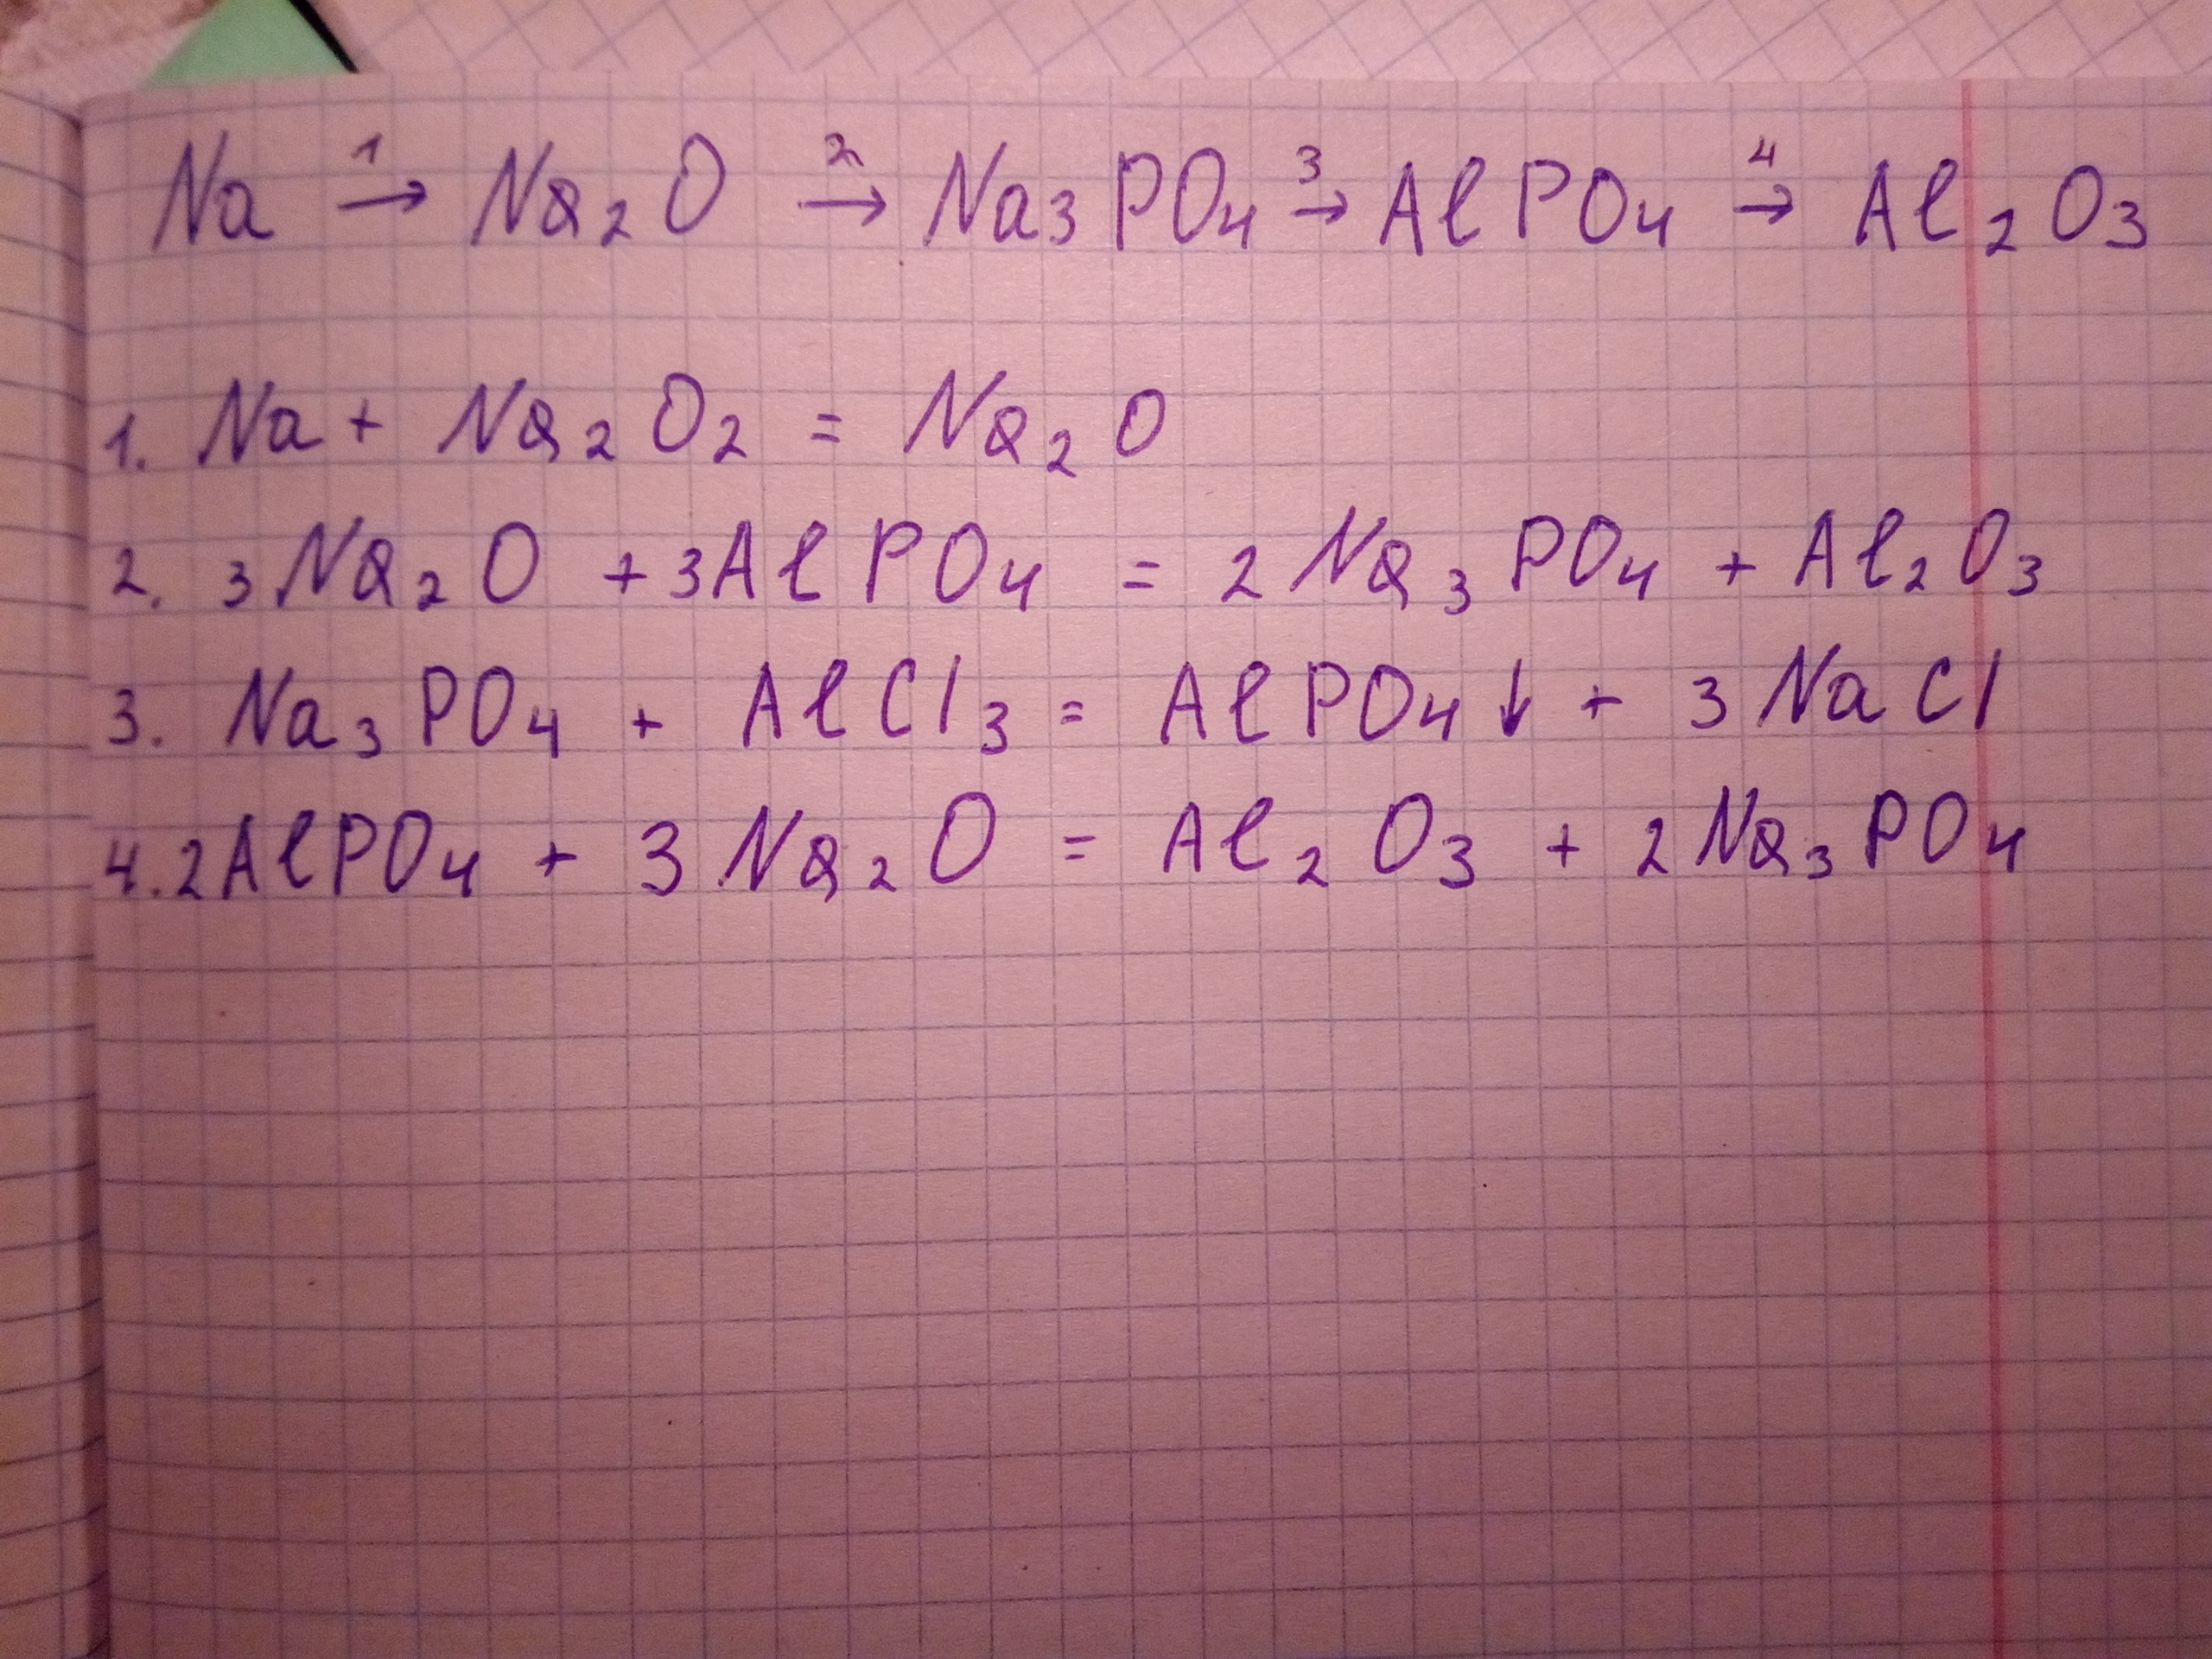 Na 1→ Na₂O 2→ Na₃PO₄ 3→ AlPO₄ 4→ Al₂O₃
1. Na + Na₂O₂ = Na₂O
2. 3Na₂O + 3AlPO₄ = 2Na₃PO₄ + Al₂O₃
3. Na₃PO₄ + AlCl₃ = AlPO₄↓ + 3NaCl
4. 2AlPO₄ + 3Na₂O = Al₂O₃ + 2Na₃PO₄